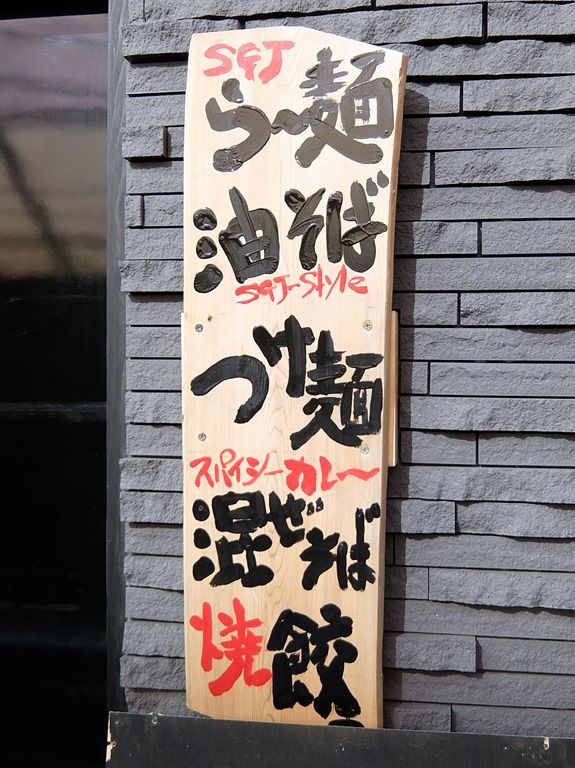 SGJ
ら〜麺
油そば
SGJ-Style
つけ麺
スパイシーカレー
混ぜそば
焼餃